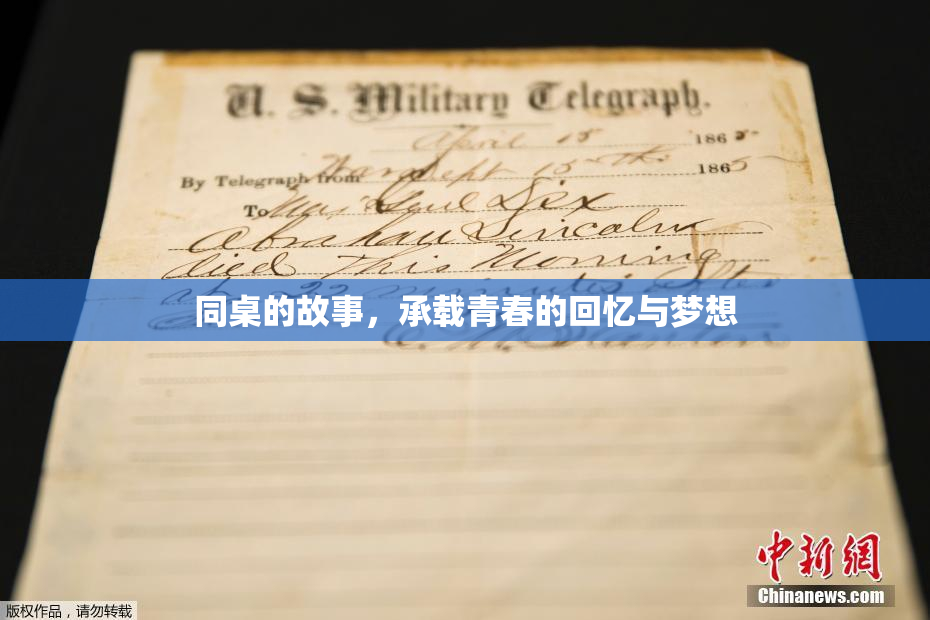 U. S. Military Telegraph.
April 15 1865
By Telegraph from War Dept 15th 1865
To Maj Genl Dix
Abraham Lincoln
died This Morning
at 22 minutes after
同桌的故事，承载青春的回忆与梦想
E. M. Stanton
中新網
Chinanews.com
版权作品，请勿转载